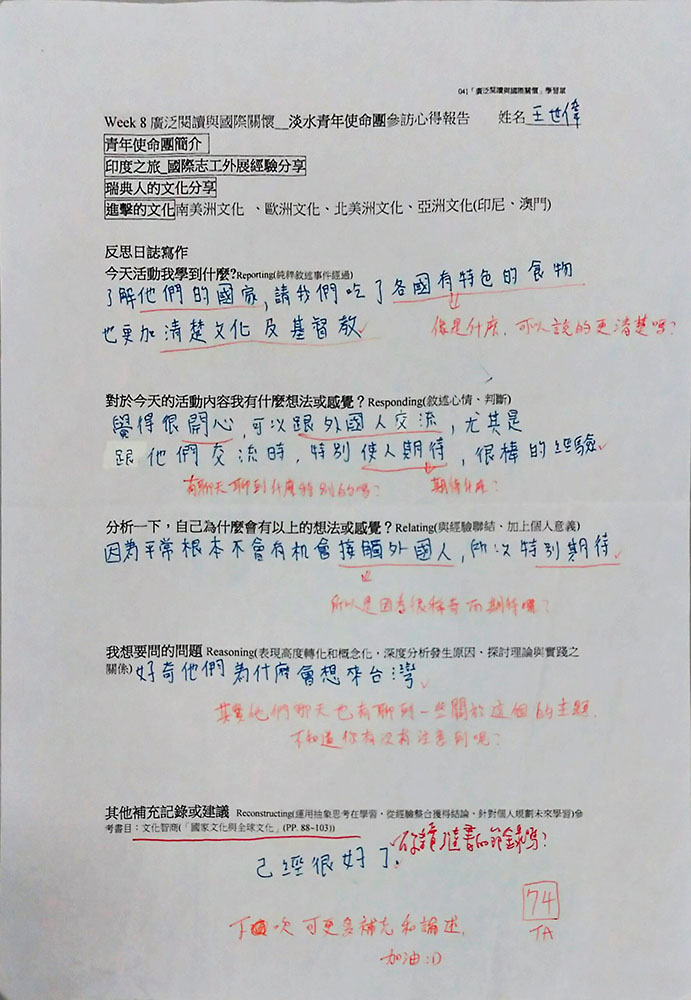 041「廣泛閱讀與國際關懷」學習單
Week 8 廣泛閱讀與國際關懷__淡水青年使命團參訪心得報告 姓名 王世偉
青年使命團簡介
印度之旅_國際志工外展經驗分享
瑞典人的文化分享
進擊的文化南美洲文化 、歐洲文化、北美洲文化、亞洲文化(印尼、澳門)
反思日誌寫作
今天活動我學到什麼?Reporting(純粹敘述事件經過)
了解他們的國家,請我們吃了各國有特色的食物
也更加清楚文化及基督教
像是什麼,可以說的更清楚嗎?
對於今天的活動內容我有什麼想法或感覺？Responding(敘述心情、判斷)
覺得很開心,可以跟外國人交流,尤其是
跟他們交流時,特別使人期待,很棒的經驗
有聊天聊到什麼特別的嗎? 期待什麼?
分析一下，自己為什麼會有以上的想法或感覺？Relating(與經驗聯結、加上個人意義)
因為平常根本不會有机會接觸外國人,所以特別期待
所以是因為很稀奇而期待囉?
我想要問的問題 Reasoning(表現高度轉化和概念化，深度分析發生原因、探討理論與實踐之
關係) 好奇他們為什麼會想來台灣
其實他們那天也有聊到一些關於這個的主題,
不知道你有沒有注意到呢?
其他補充記錄或建議 Reconstructing(運用抽象思考在學習，從經驗整合獲得結論，針對個人規劃未來學習)參
考書目：文化智商(「國家文化與全球文化」(PP. 88~103))
已經很好了
下次可更多補充和論述,
加油:D
74
TA